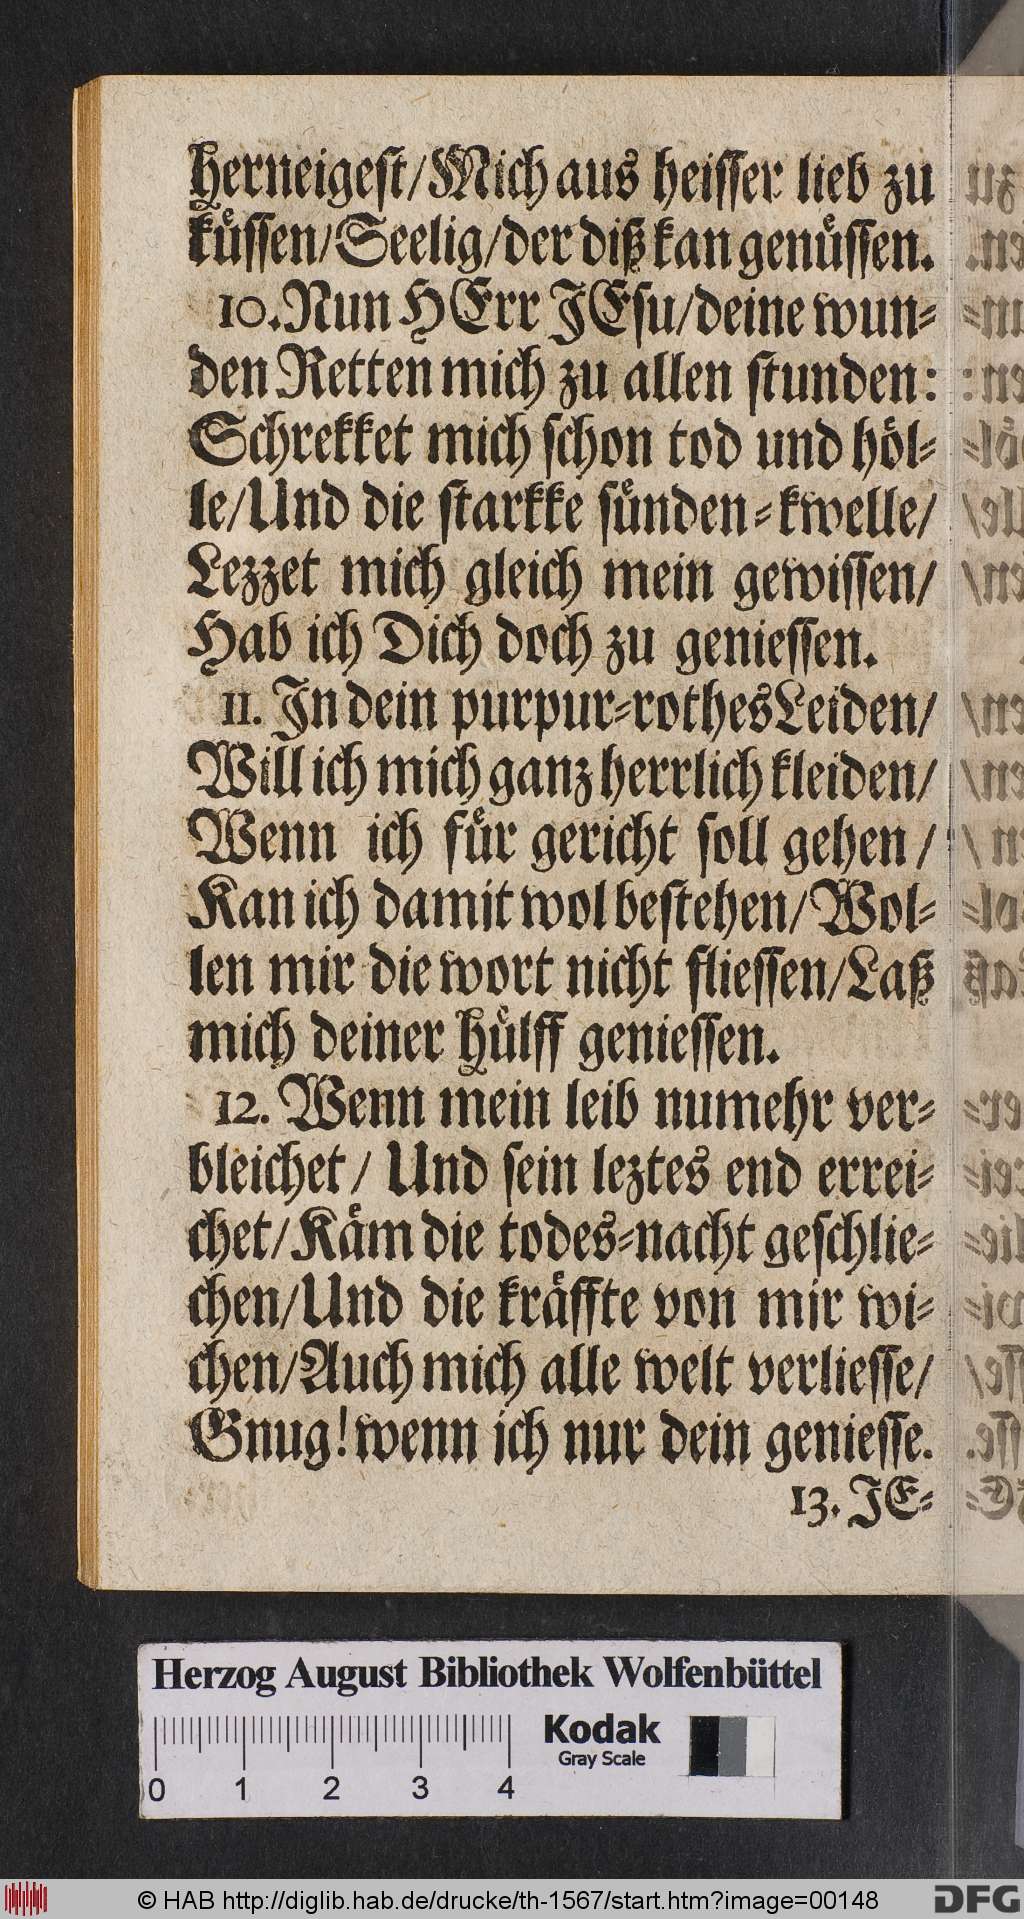 herneigest/Mich aus heisser lieb zu
küssen/Seelig/der diß kan genüssen.
10. Nun HErr JEsu/deine wun-
den Retten mich zu allen stunden:
Schrekket mich schon tod und höl-
le/Und die starkke sünden-kwelle/
Lezzet mich gleich mein gewissen/
Hab ich Dich doch zu geniessen.
11. In dein purpur-rothes Leiden/
Will ich mich ganz herrlich kleiden/
Wenn ich für gericht soll gehen/
Kan ich damit wol bestehen/Wol-
len mir die wort nicht fliessen/Laß
mich deiner hülff geniessen.
12. Wenn mein leib numehr ver-
bleichet/ Und sein leztes end errei-
chet/Käm die todes-nacht geschlie-
chen/Und die kräffte von mir wi-
chen/Auch mich alle welt verliesse/
Gnug! wenn ich nur dein geniesse.
13. JE-
Herzog August Bibliothek Wolfenbüttel
Kodak
Gray Scale
0 1 2 3 4
© HAB http://diglib.hab.de/drucke/th-1567/start.htm?image=00148
DFG